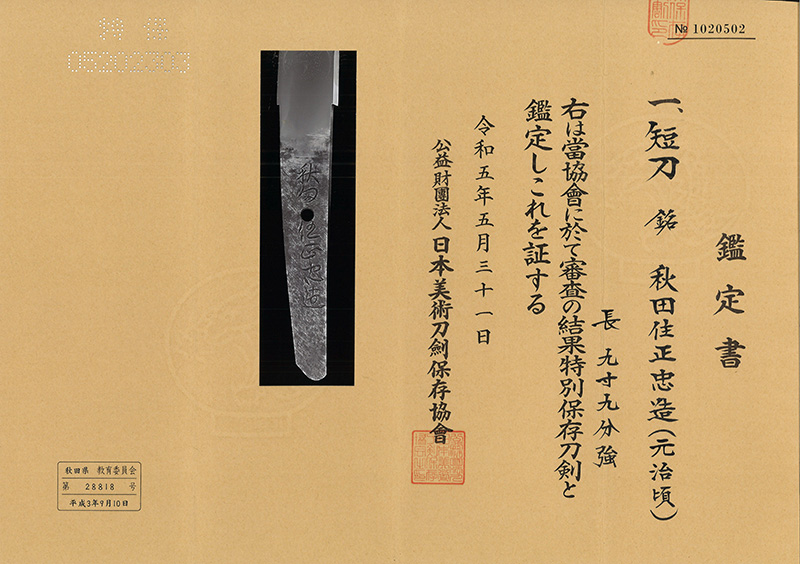 № 1020502
鑑定書
一、短刀 銘 秋田住正忠造(元治頃)
長 九寸九分強
右は當協會に於て審査の結果特別保存刀剣と
鑑定しこれを証する
令和五年五月三十一日
公益財團法人 日本美術刀劍保存協會
秋田住正忠造
05202303
秋田県 教育委員会
第 28818 号
平成3年9月10日